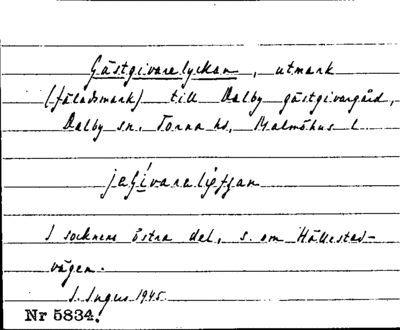 Gästgivarelyckan, utmark
(fäladsmark) till Dalby gästgivargård,
Dalby sn, Torna hd, Malmöhus l.
I socknens östra del, s. om Hällestad-
vägen.
S. Ingers 1945.
Nr 5834.